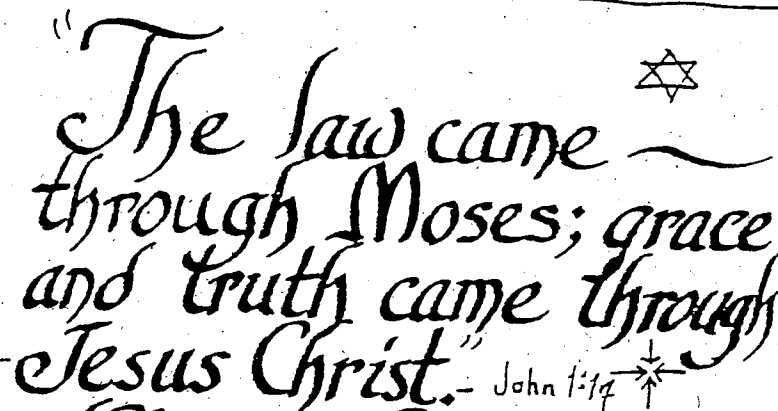 "The law came
through Moses; grace
and truth came through
Jesus Christ." - John 1:17